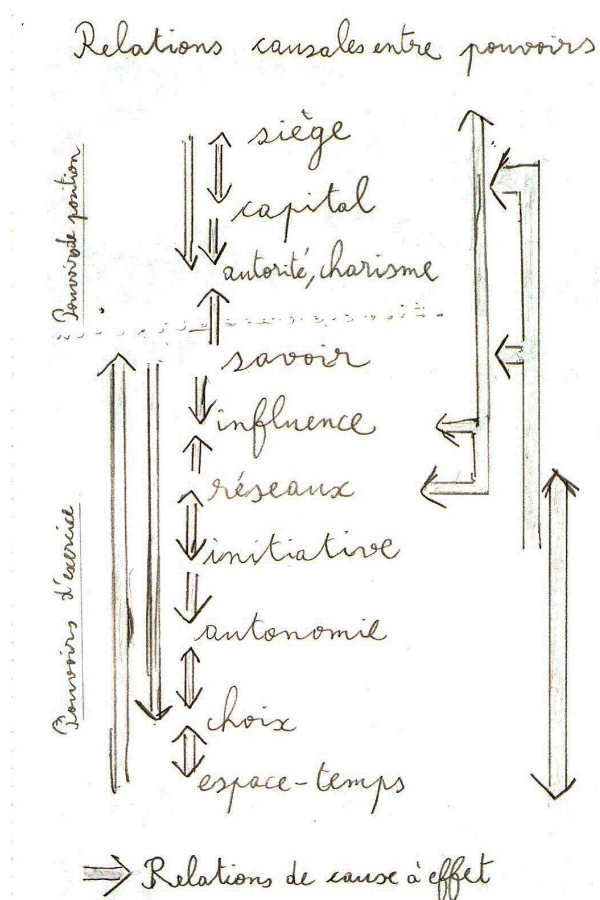 Relations causales entre pouvoirs
Pouvoirs de position
siège
capital
autorité, charisme
savoir
influence
réseaux
Pouvoirs d'exercice
initiative
autonomie
choix
espace-temps
Relations de cause à effet